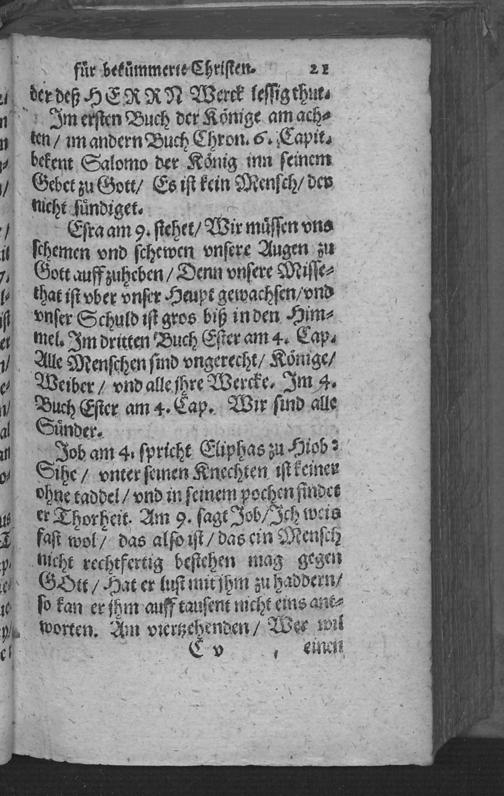 für bekümmerte Christen. 21
der deß HERRN Werck lessig thut.
Im ersten Buch der Könige am ach-
ten / im andern Buch Chron. 6. Capit.
bekent Salomo der König inn seinem
Gebet zu Gott / Es ist kein Mensch / der
nicht sündiget.
Esra am 9. stehet / Wir müssen vns
schemen vnd schewen vnsere Augen zu
Gott auffzuheben / Denn vnsere Misse-
that ist vber vnser Heupt gewachsen / vnd
vnser Schuld ist gros biß in den Him-
mel. Im dritten Buch Eser am 4. Cap.
Alle Menschen sind vngerecht / Könige /
Weiber / vnd alle jhre Wercke. Im 4.
Buch Eser am 4. Cap. Wir sind alle
Sünder.
Job am 4. spricht Eliphas zu Hiob:
Sihe / vnter seinen Knechten ist keiner
ohne taddel / vnd in seinem pochen findet
er Thorheit. Am 9. sagt Job / Ich weis
fast wol / das also ist / das ein Mensch
nicht rechtfertig bestehen mag gegen
GOtt / Hat er lust mit jhm zu haddern /
so kan er jhm auff tausent nicht eins ant-
worten. Am viertzehenden / Wer wil
C v einen